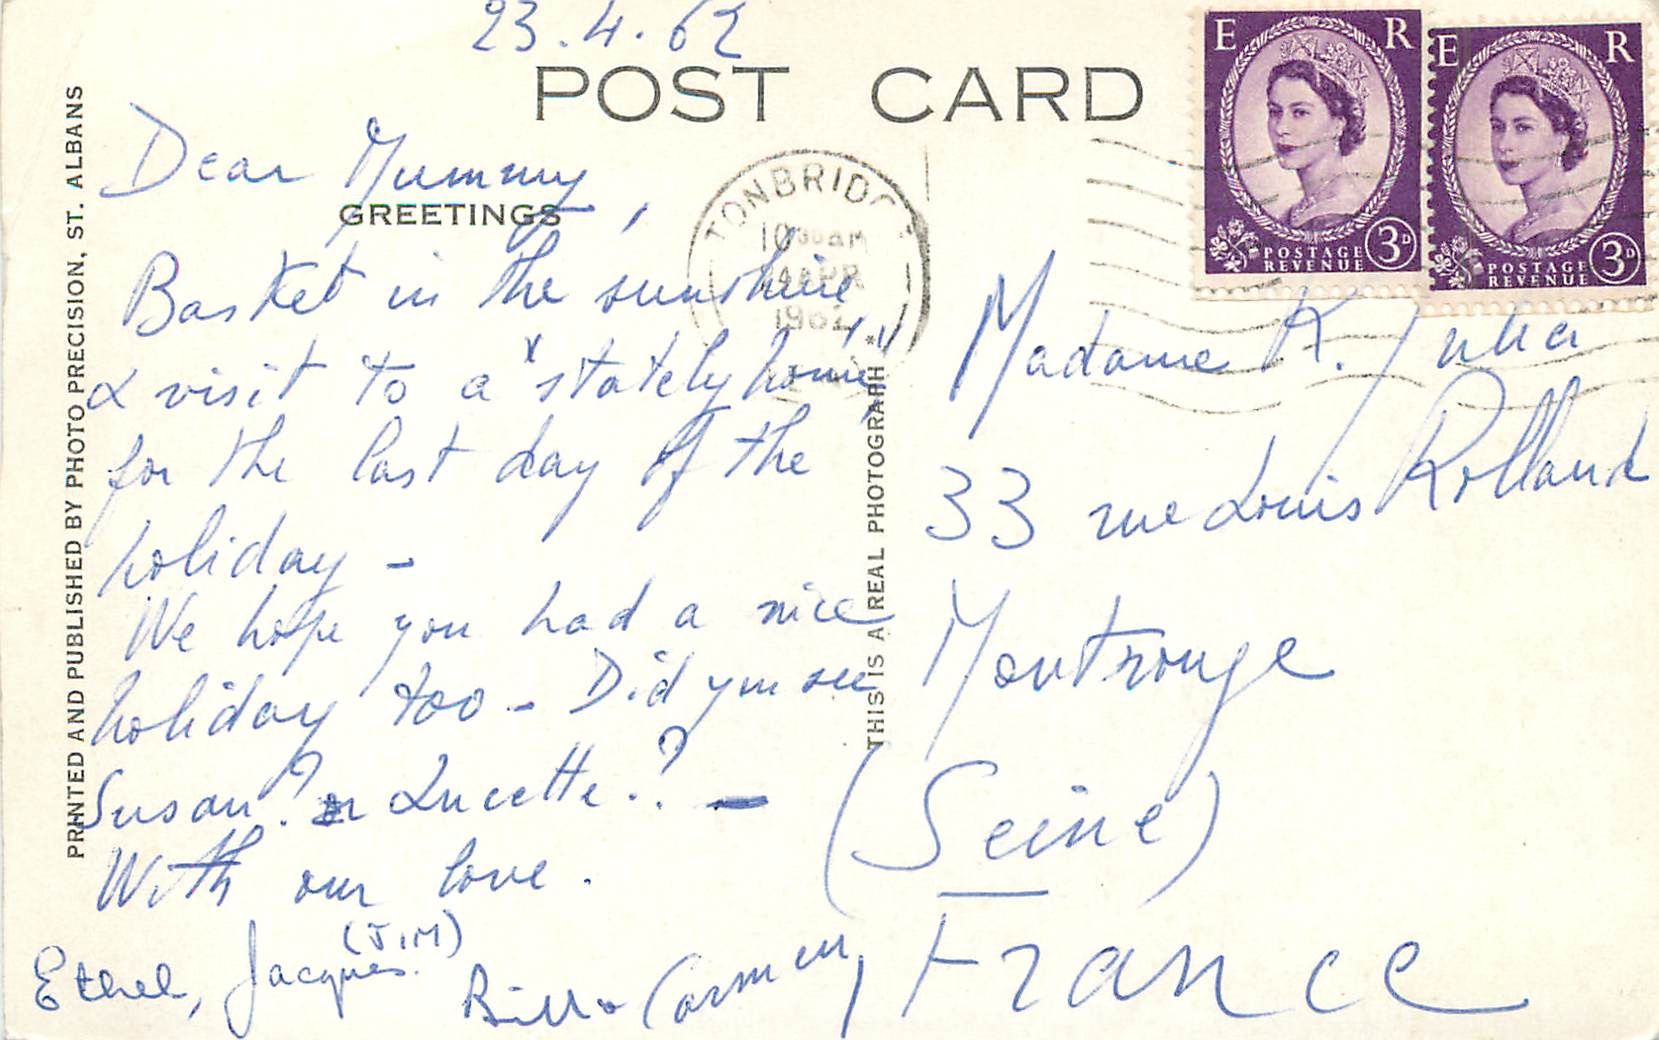 23.4.62
POST CARD
Dear Mummy,
GREETINGS
Basket in the sunshine
& visit to a "stately home",
for the last day of the
holiday -
We hope you had a nice
holiday too - Did you see
Susan? or Lucette? -
With our love.
Ethel, Jacques. (JIM) Bill & Carmen,
PRINTED AND PUBLISHED BY PHOTO PRECISION, ST. ALBANS
THIS IS A REAL PHOTOGRAPH *
TONBRIDGE
1030AM
24 APR
1962
E R
POSTAGE
REVENUE
3D
E R
POSTAGE
REVENUE
3D
Madame K.
33 rue Louis Rolland
Montrouge
(Seine)
France